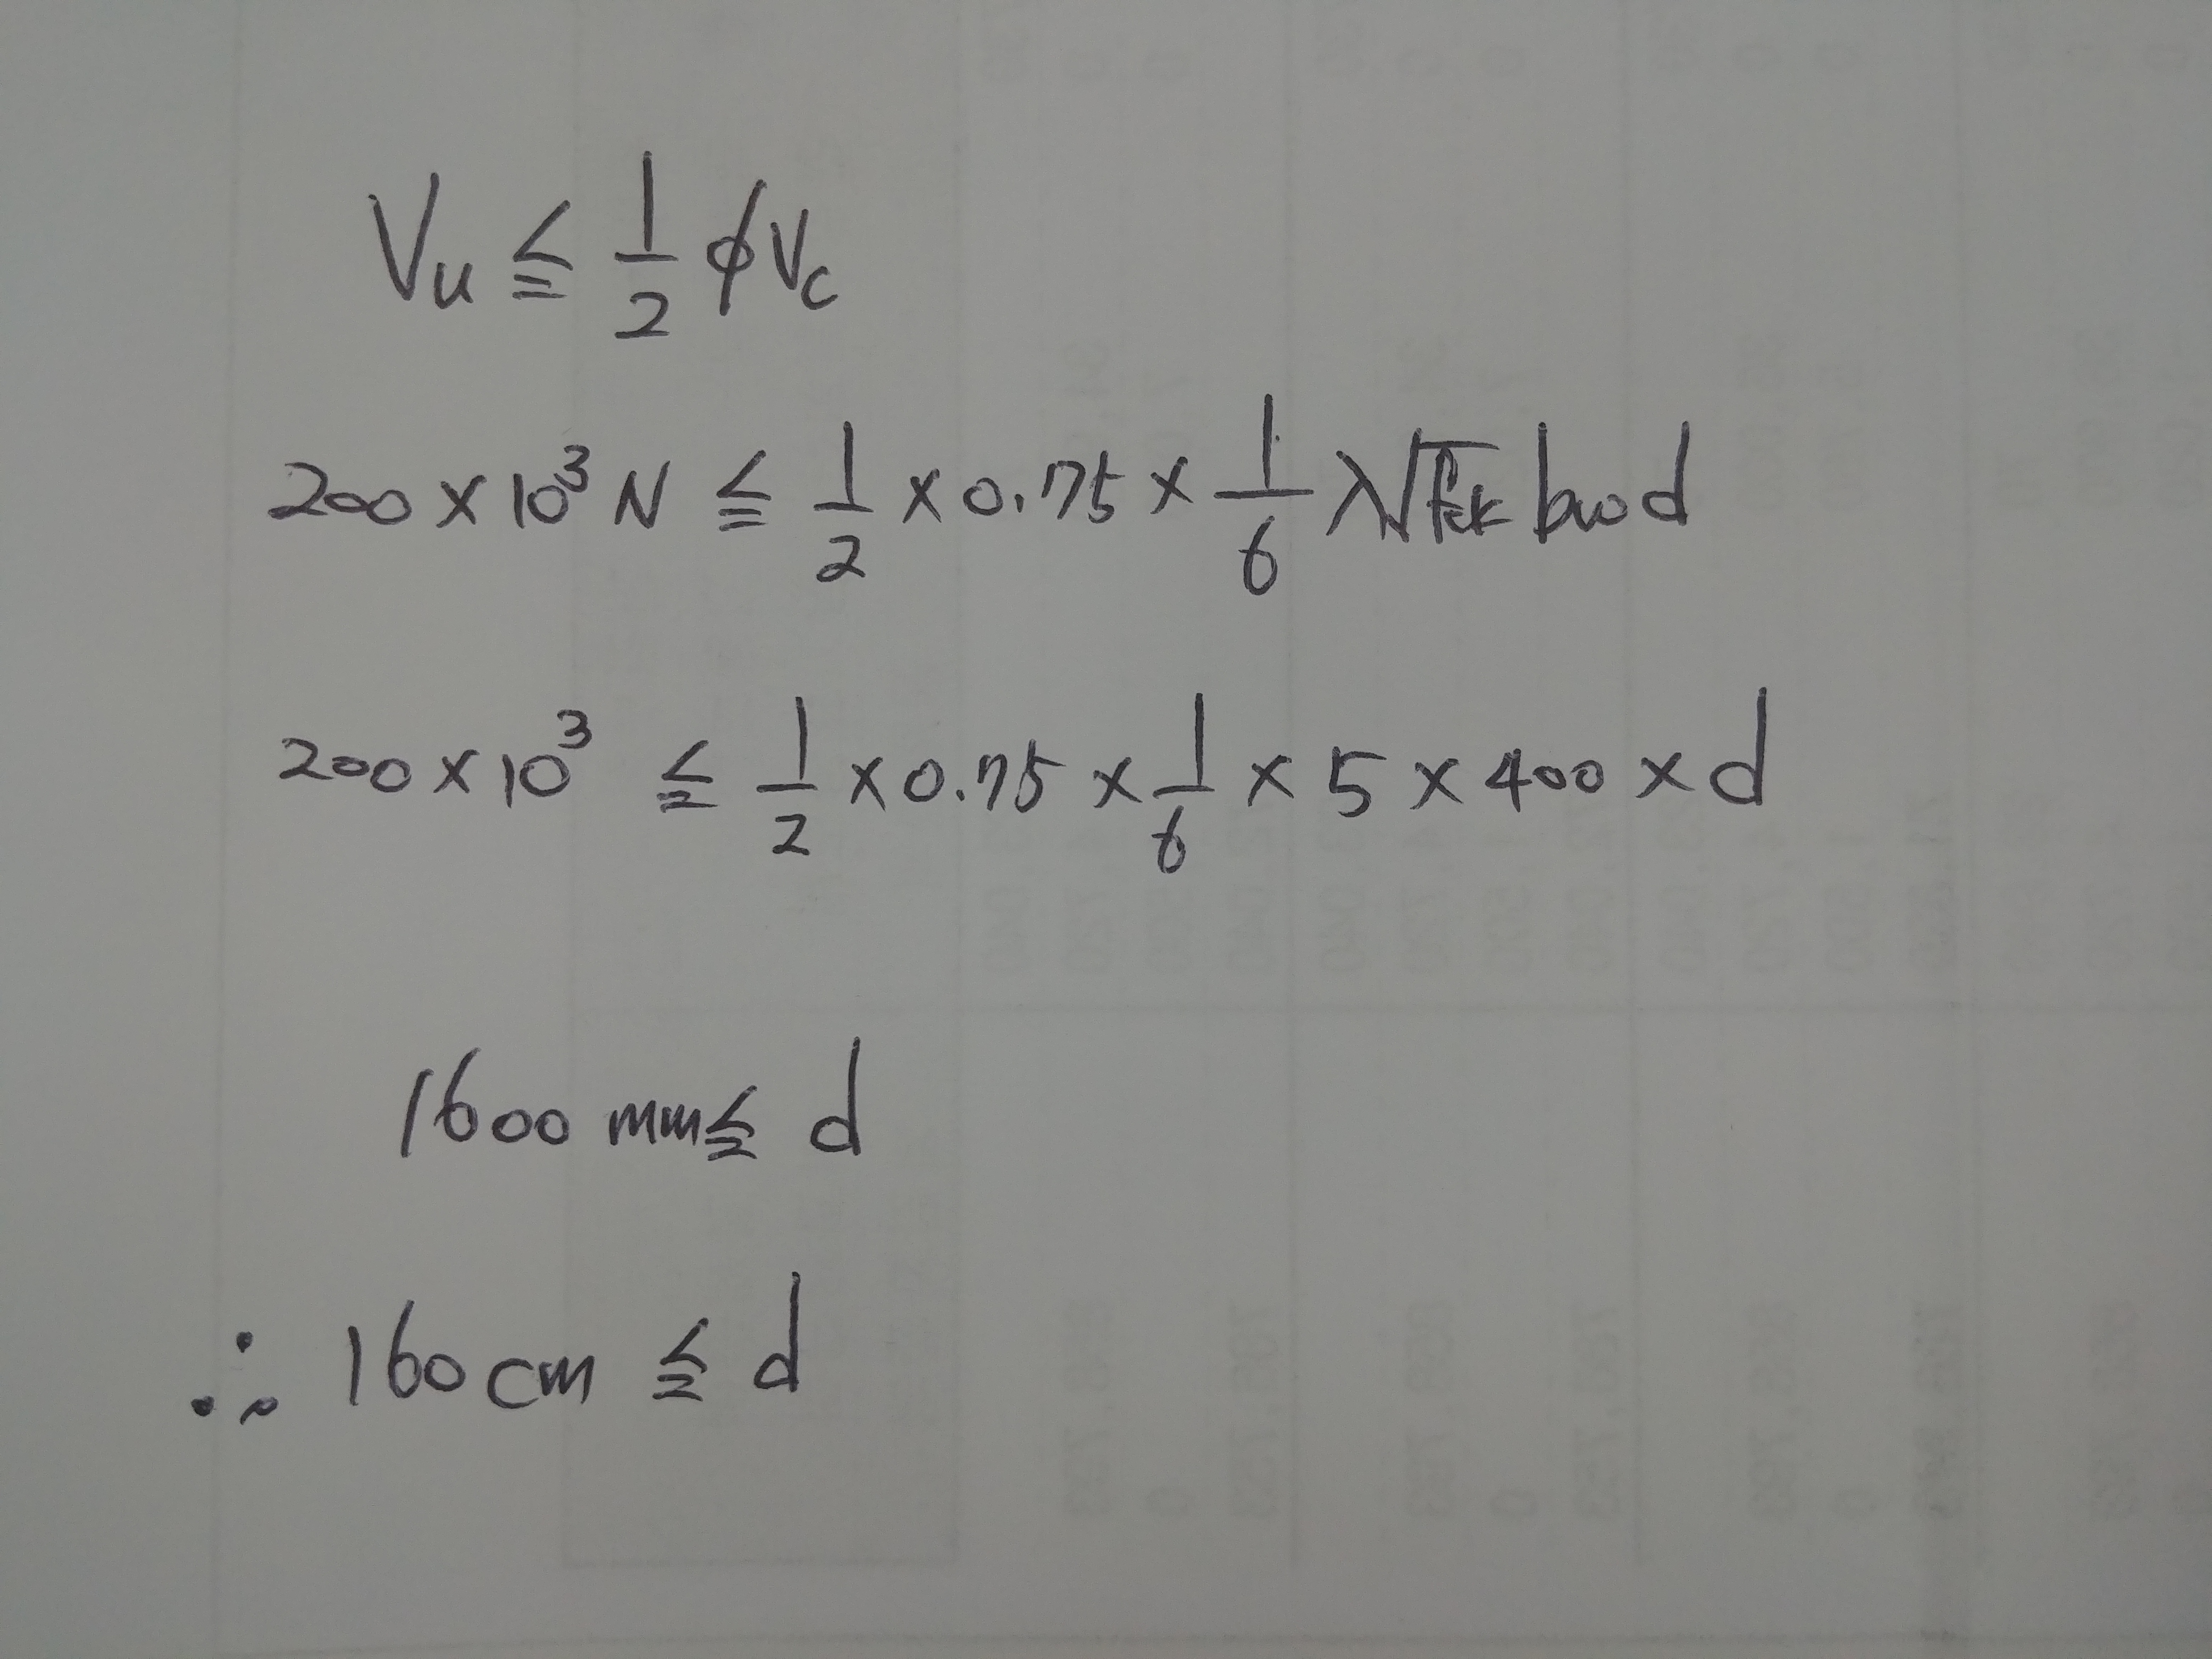 Vu ≦ 1/2 φVc
200 × 10³ N ≦ 1/2 × 0.75 × 1/6 λ√fck bwd
200 × 10³ ≦ 1/2 × 0.75 × 1/6 × 5 × 400 × d
1600 mm ≦ d
∴ 160 cm ≦ d